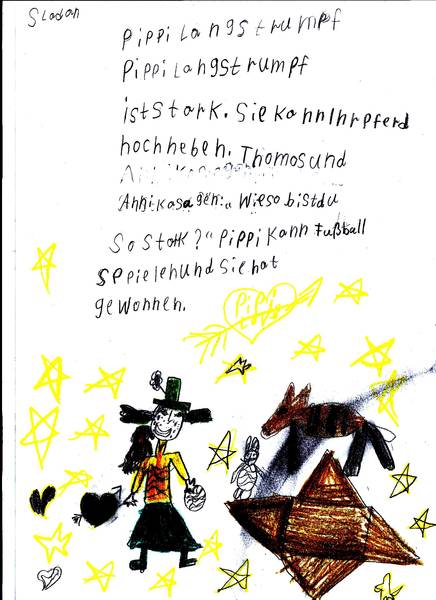 Sladan
Pippi Langstrumpf
Pippi Langstrumpf
ist Stark. Sie kann Ihr pferd
hochheben. Thomos und
Annika sagen: „Wieso bist du
So stark?" Pippi kann Fußball
sppielen und Sie hat
gewonnen.
Pippi